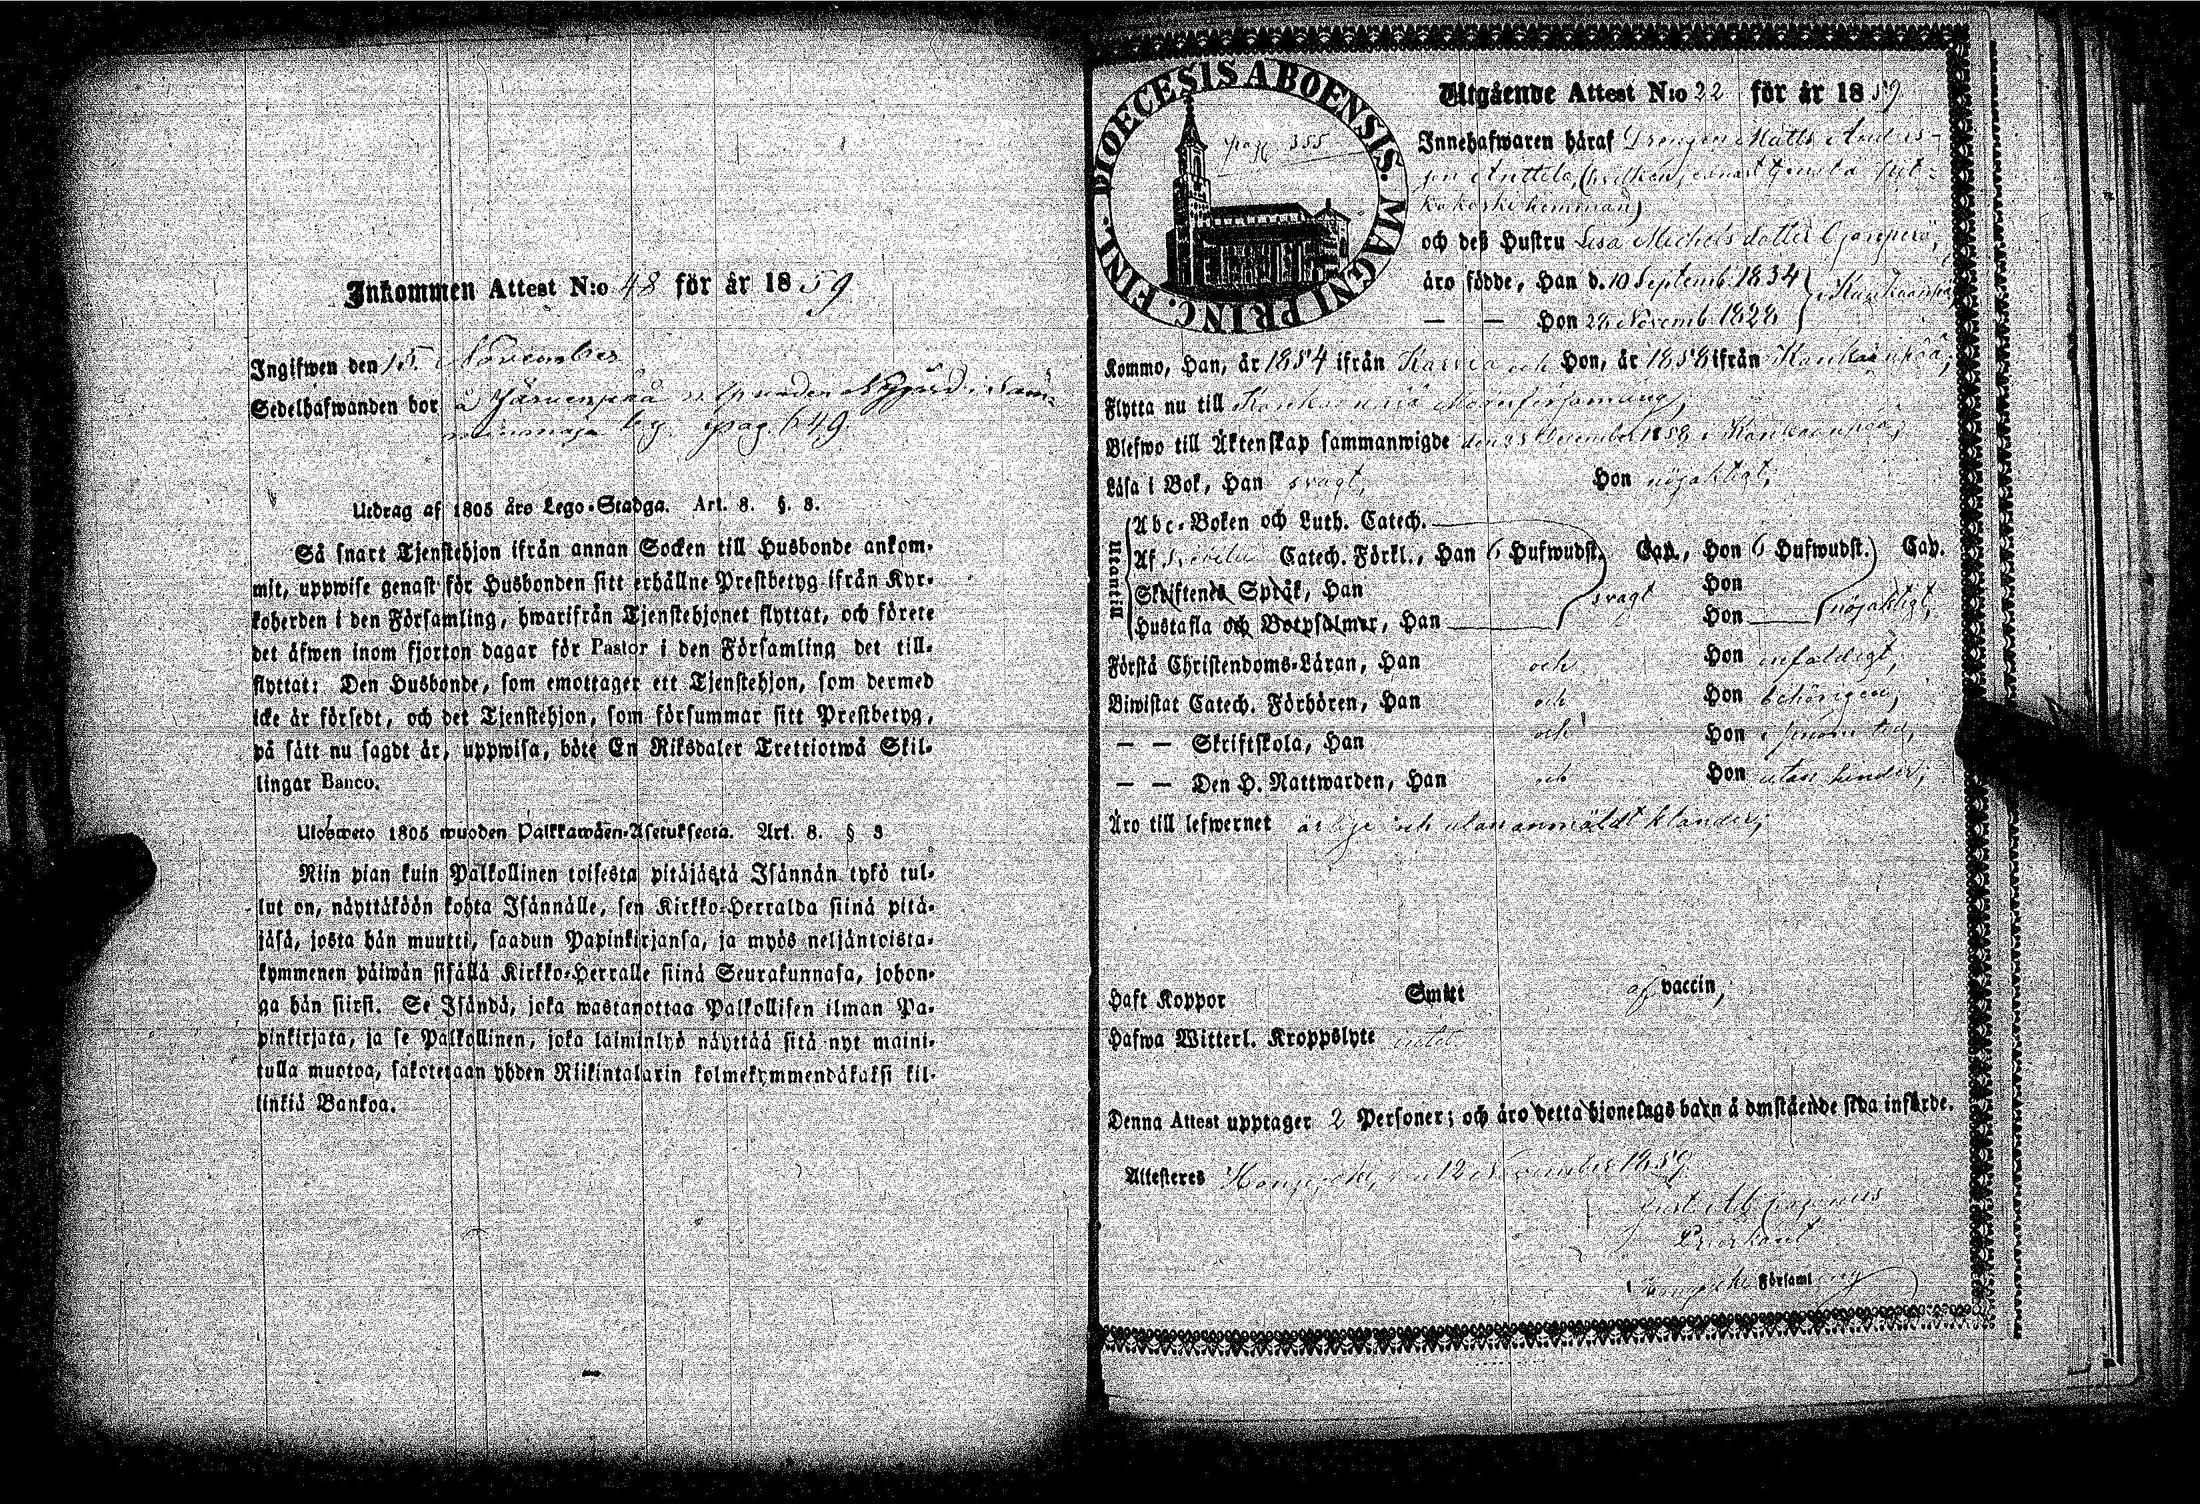 Inkommen Attest N:o 48 för år 1859
Ingifwen den 15. November
Sedelhafwanden bor å Järvenpää under Nygård i
by. pag. 649.
Utdrag af 1805 års Lego-Stadga. Art. 8. §. 8.
Så snart Tjenstehjon ifrån annan Socken till Husbonde ankom-
mit, uppwise genast för Husbonden sitt erhållne Prestbetyg ifrån Kyr-
koherden i den Församling, hwarifrån Tjenstehjonet flyttat, och förete
det äfwen inom fjorton dagar för Pastor i den Församling det till-
flyttat: Den Husbonde, som emottager ett Tjenstehjon, som dermed
icke är försedt, och det Tjenstehjon, som försummar sitt Prestbetyg,
på sätt nu sagdt är, uppwisa, böte En Riksdaler Trettiotwå Skil-
lingar Banco.
Ulosweto 1805 wuoden Palkkawäen-Asetuksesta. Art. 8. § 8
Niin pian kuin Palkollinen toisesta pitäjästä Isännän tykö tul-
lut on, näyttäköön kohta Isännälle, sen Kirkko-Herralda siinä pitä-
jäsä, josta hän muutti, saadun Papinkirjansa, ja myös neljäntoista-
kymmenen päiwän sisällä Kirkko-Herralle siinä Seurakunnasa, johon-
ga hän siirsi. Se Isändä, joka wastanottaa Palkollisen ilman Pa-
pinkirjata, ja se Palkollinen, joka laiminlyö näyttää sitä nyt maini-
tulla muotoa, sakotetaan yhden Riikintalarin kolmekymmendäkaksi kil-
linkiä Bankoa.
FINL. DIOECESIS ABOENSIS. MAGNI PRINC.
pag 355
Utgående Attest N:o 22 för år 1859
Innehafwaren häraf Drengen Matts Anders-
son Anttila,
hemman)
och deß Hustru Lisa Michelsdotter
äro födde, Han d. 10 Septemb. 1834
— — Hon Novemb. 1828
Kommo, Han, år 1854 ifrån och Hon, år 1858 ifrån
Flytta nu till
Blefwo till Äktenskap sammanwigde den December 1858 i
Läsa i Bok, Han svagt, Hon nöjaktigt,
Utantill
Abc-Boken och Luth. Catech.
Af Catech. Förkl., Han 6 Hufwudst. Cap., Hon 6 Hufwudst. Cap.
Skriftenes Språk, Han svagt Hon
Hustafla och Botpsalmer, Han Hon nöjaktigt,
Förstå Christendoms-Läran, Han och Hon enfaldigt,
Biwistat Catech. Förhören, Han och Hon behörigen,
— — Skriftskola, Han och Hon i sinom tid,
— — Den H. Nattwarden, Han och Hon utan hinder;
Äro till lefwernet ärlige och utan anmäldt klander;
Haft Koppor Smitt af vaccin;
Hafwa Witterl. Kroppslyte intet
Denna Attest upptager 2 Personer; och äro detta hjonelags barn å omstående sida införde.
Attesteras den 12 November 1859
Församling